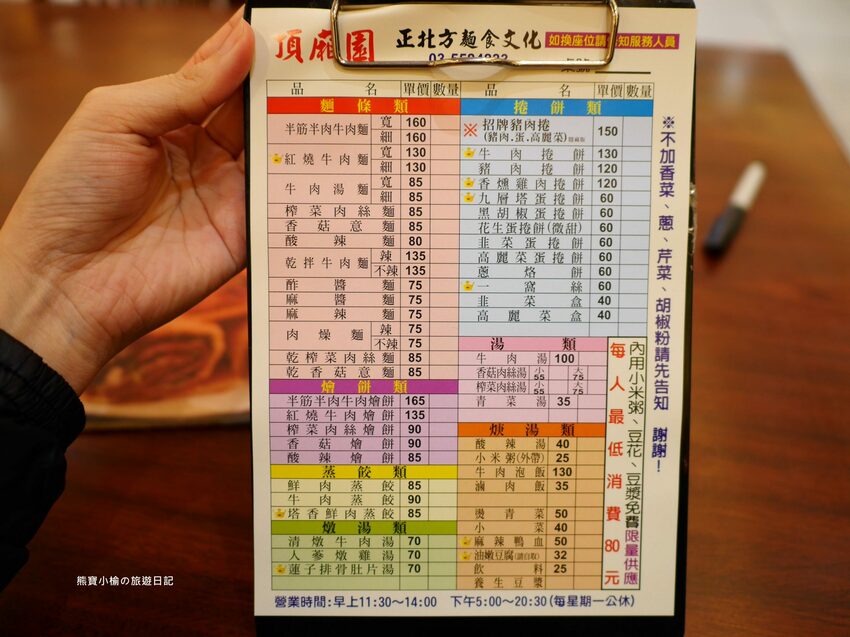 頂廂園 正北方麵食文化 如換座位請告知服務人員
品 名 單價 數量
麵條類
半筋半肉牛肉麵 寬 160
細 160
紅燒牛肉麵 寬 130
細 130
牛肉湯麵 寬 85
細 85
榨菜肉絲麵 85
香菇意麵 85
酸辣麵 80
乾拌牛肉麵 辣 135
不辣 135
酢醬麵 75
麻醬麵 75
麻辣麵 75
肉燥麵 辣 75
不辣 75
乾榨菜肉絲麵 85
乾香菇意麵 85
燴餅類
半筋半肉牛肉燴餅 165
紅燒牛肉燴餅 135
榨菜肉絲燴餅 90
香菇燴餅 90
酸辣燴餅 85
蒸餃類
鮮肉蒸餃 85
牛肉蒸餃 90
塔香鮮肉蒸餃 85
燉湯類
清燉牛肉湯 70
人蔘燉雞湯 70
蓮子排骨肚片湯 70
品 名 單價 數量
捲餅類
※ 招牌豬肉捲 150
(豬肉.蛋.高麗菜)
牛肉捲餅 130
豬肉捲餅 120
香燻雞肉捲餅 120
九層塔蛋捲餅 60
黑胡椒蛋捲餅 60
花生蛋捲餅(微甜) 60
韭菜蛋捲餅 60
高麗菜蛋捲餅 60
蔥烙餅 60
一窩絲 60
韭菜盒 40
高麗菜盒 40
湯類
牛肉湯 100
香菇肉絲湯 小55 大75
榨菜肉絲湯 小55 大75
青菜湯 35
焿湯類
酸辣湯 40
小米粥(外帶) 25
牛肉泡飯 130
滷肉飯 35
燙青菜 50
小菜 40
麻辣鴨血 50
油嫩豆腐(請自取) 32
飲料 25
養生豆漿
每人最低消費80元
內用小米粥、豆花、豆漿免費限量供應
※不加香菜、蔥、芹菜、胡椒粉請先告知 謝謝！
營業時間:早上11:30～14:00 下午5:00～20:30(每星期一公休)
熊寶小榆の旅遊日記